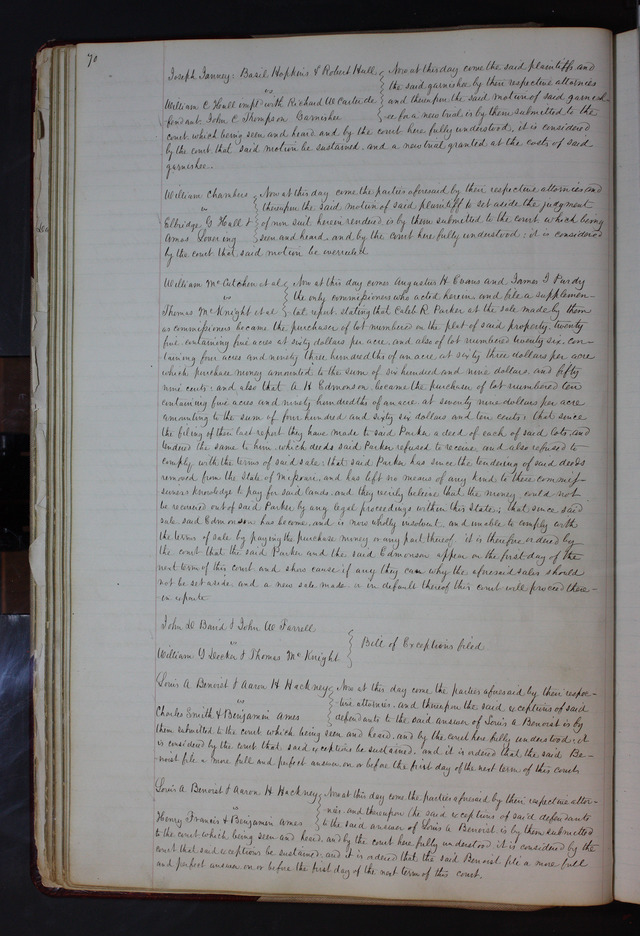 70
Joseph Tanney, Basil Hopkins & Robert Hull { Now at this day come the said plaintiffs and
vs { the said garnishee by their respective attornies
William C Hall impl. with Richard W { and thereupon the said motion of said garnish-
fendant. John C Thompson Garnishee { ee for a new trial is by them submitted to the
court which being seen and heard and by the court here fully understood, it is considered
by the court that said motion be sustained, and a new trial granted at the costs of said
garnishee.
William Chambers { Now at this day come the parties aforesaid by their respective attornies and
vs { thereupon the said motion of said plaintiff to set aside the judgment
Elbridge G Hall & { of non suit herein rendered is by them submitted to the court which being
Amos Lovering { seen and heard, and by the court here fully understood; it is considered
by the court that said motion be overruled
William McCutchen et al { Now at this day comes Augustus H Evans and James F Purdy
vs { the only commissioners who acted herein and file a supplemen-
Thomas McKnight et al { tal report, stating that Caleb R. Parker at the sale made by them
as commissioners became the purchaser of lot numbered on the plat of said property, twenty
five containing five acres at sixty dollars per acre, and also of lot numbered twenty six, con-
taining four acres and ninety three hundredths of an acre at sixty three dollars per acre
which purchase money amounted to the sum of six hundred and nine dollars, and fifty
nine cents; and also that A H Edmonson became the purchaser of lot numbered ten
containing five acres and ninety hundredths of an acre at seventy nine dollars per acre
amounting to the sum of four hundred and sixty six dollars and ten cents; that since
the filing of their last report they have made to said Parker a deed of each of said lots, and
tendered the same to him, which deeds said Parker refused to receive, and also refused to
comply with the terms of said sale; that said Parker has since the tendering of said deeds
removed from the State of Missouri, and has left no means of any kind to these commis-
sioners knowledge to pay for said lands, and they verily believe that the money could not
be recovered out of said Parker by any legal proceedings within this State; that since said
sale, said Edmonson has become, and is now wholly insolvent, and unable to comply with
the terms of sale by paying the purchase money or any part thereof. it is therefore ordered by
the court that the said Parker and the said Edmonson appear on the first day of the
next term of this court and show cause if any they can why the aforesaid sales should
not be set aside and a new sale made, or in default thereof this court will proceed there-
in exparte.
John D Baird & John W Farrell
vs { Bill of Exceptions filed
William G Decker & Thomas McKnight
Louis A Benoist & Aaron H Hackney { Now at this day come the parties aforesaid by their respec-
vs { tive attornies, and thereupon the said exceptions of said
Charles Smith & Benjamin Ames { defendants to the said answer of Louis A Benoist is by
them submitted to the court which being seen and heard, and by the court here fully understood; it
is considered by the court that said exceptions be sustained, and it is ordered that the said Be-
noist file a more full and perfect answer on or before the first day of the next term of this court.
Louis A Benoist & Aaron H Hackney { Now at this day come the parties aforesaid by their respective attor-
vs { nies and thereupon the said exceptions of said defendants
Henry Francis & Benjamin Ames { to the said answer of Louis A Benoist is by them submitted
to the court which being seen and heard, and by the court here fully understood it is considered by the
court that said exceptions be sustained, and it is ordered that the said Benoist file a more full
and perfect answer on or before the first day of the next term of this court.